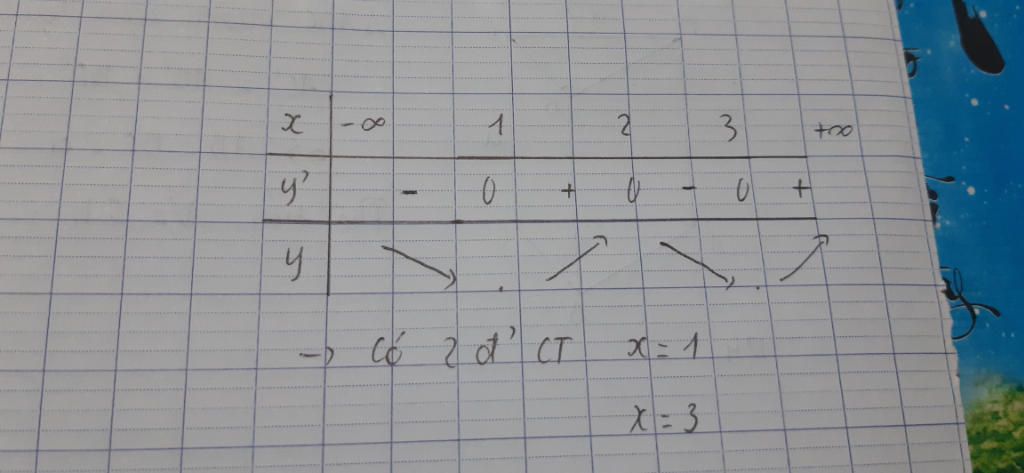 x -∞ 1 2 3 +∞
y' - 0 + 0 - 0 +
y ↘ ↗ ↘ ↗
→ Có 2 đ' CT x = 1
x = 3